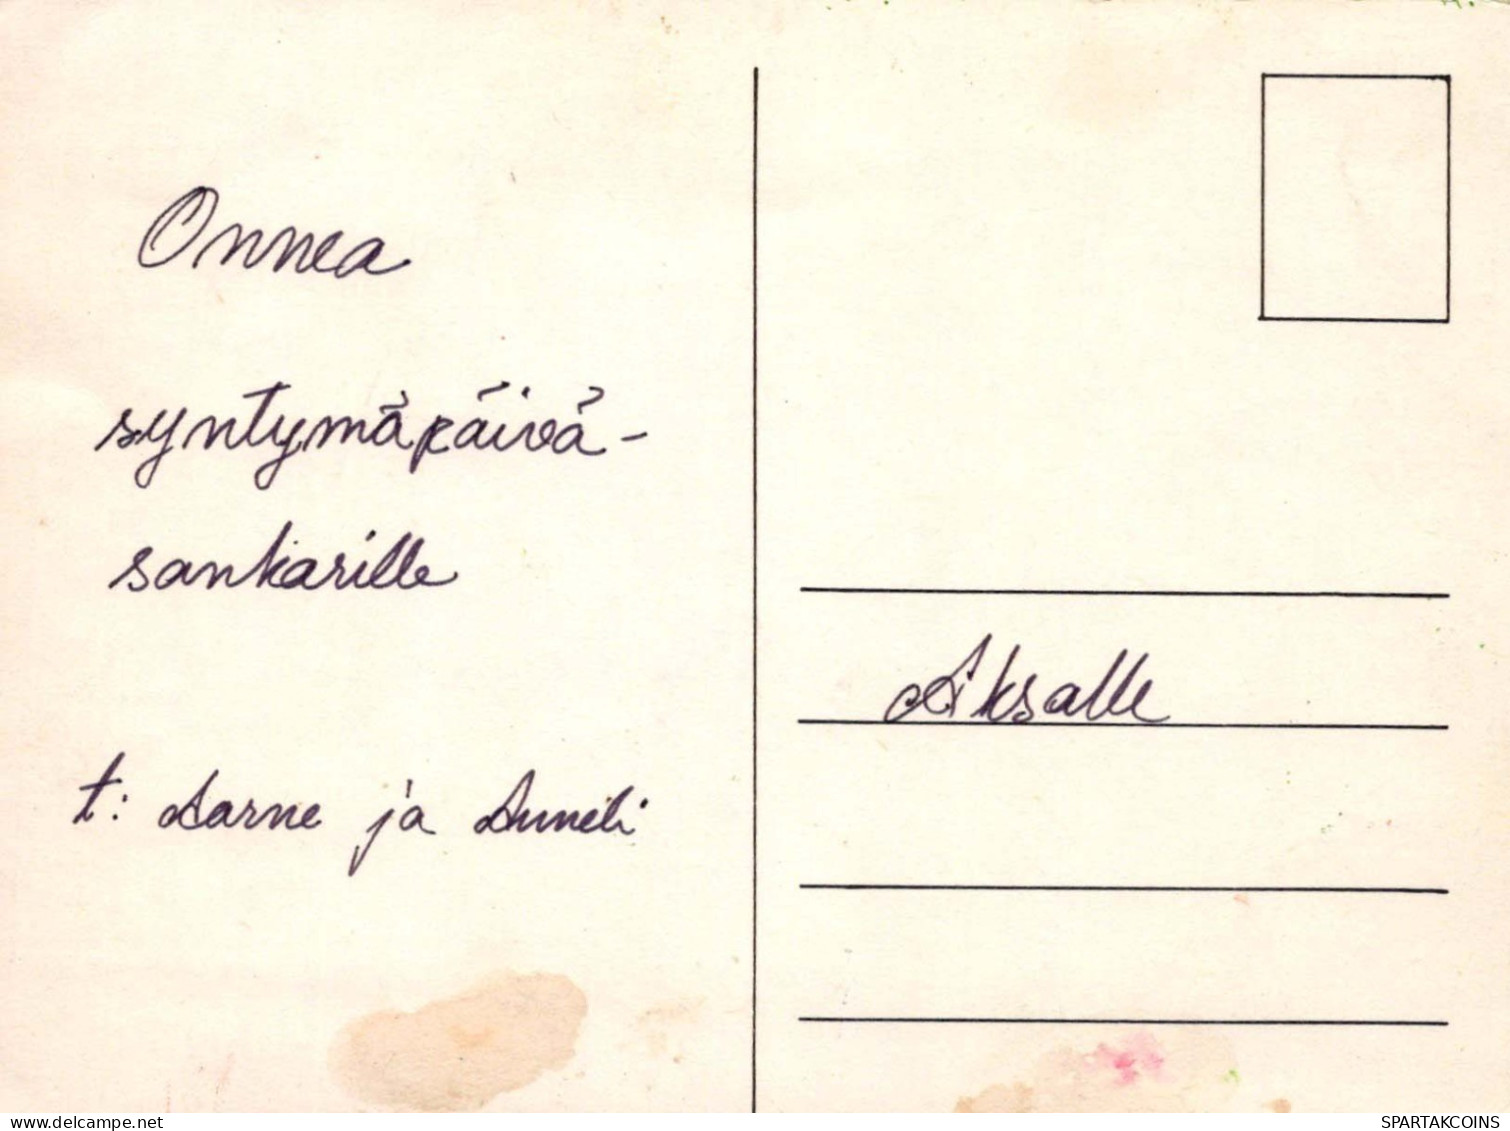 Onnea
syntymäpäivä-
sankarille
t: Aarne ja Anneli
Aksalle
delcampe.net
SPARTAKCOINS